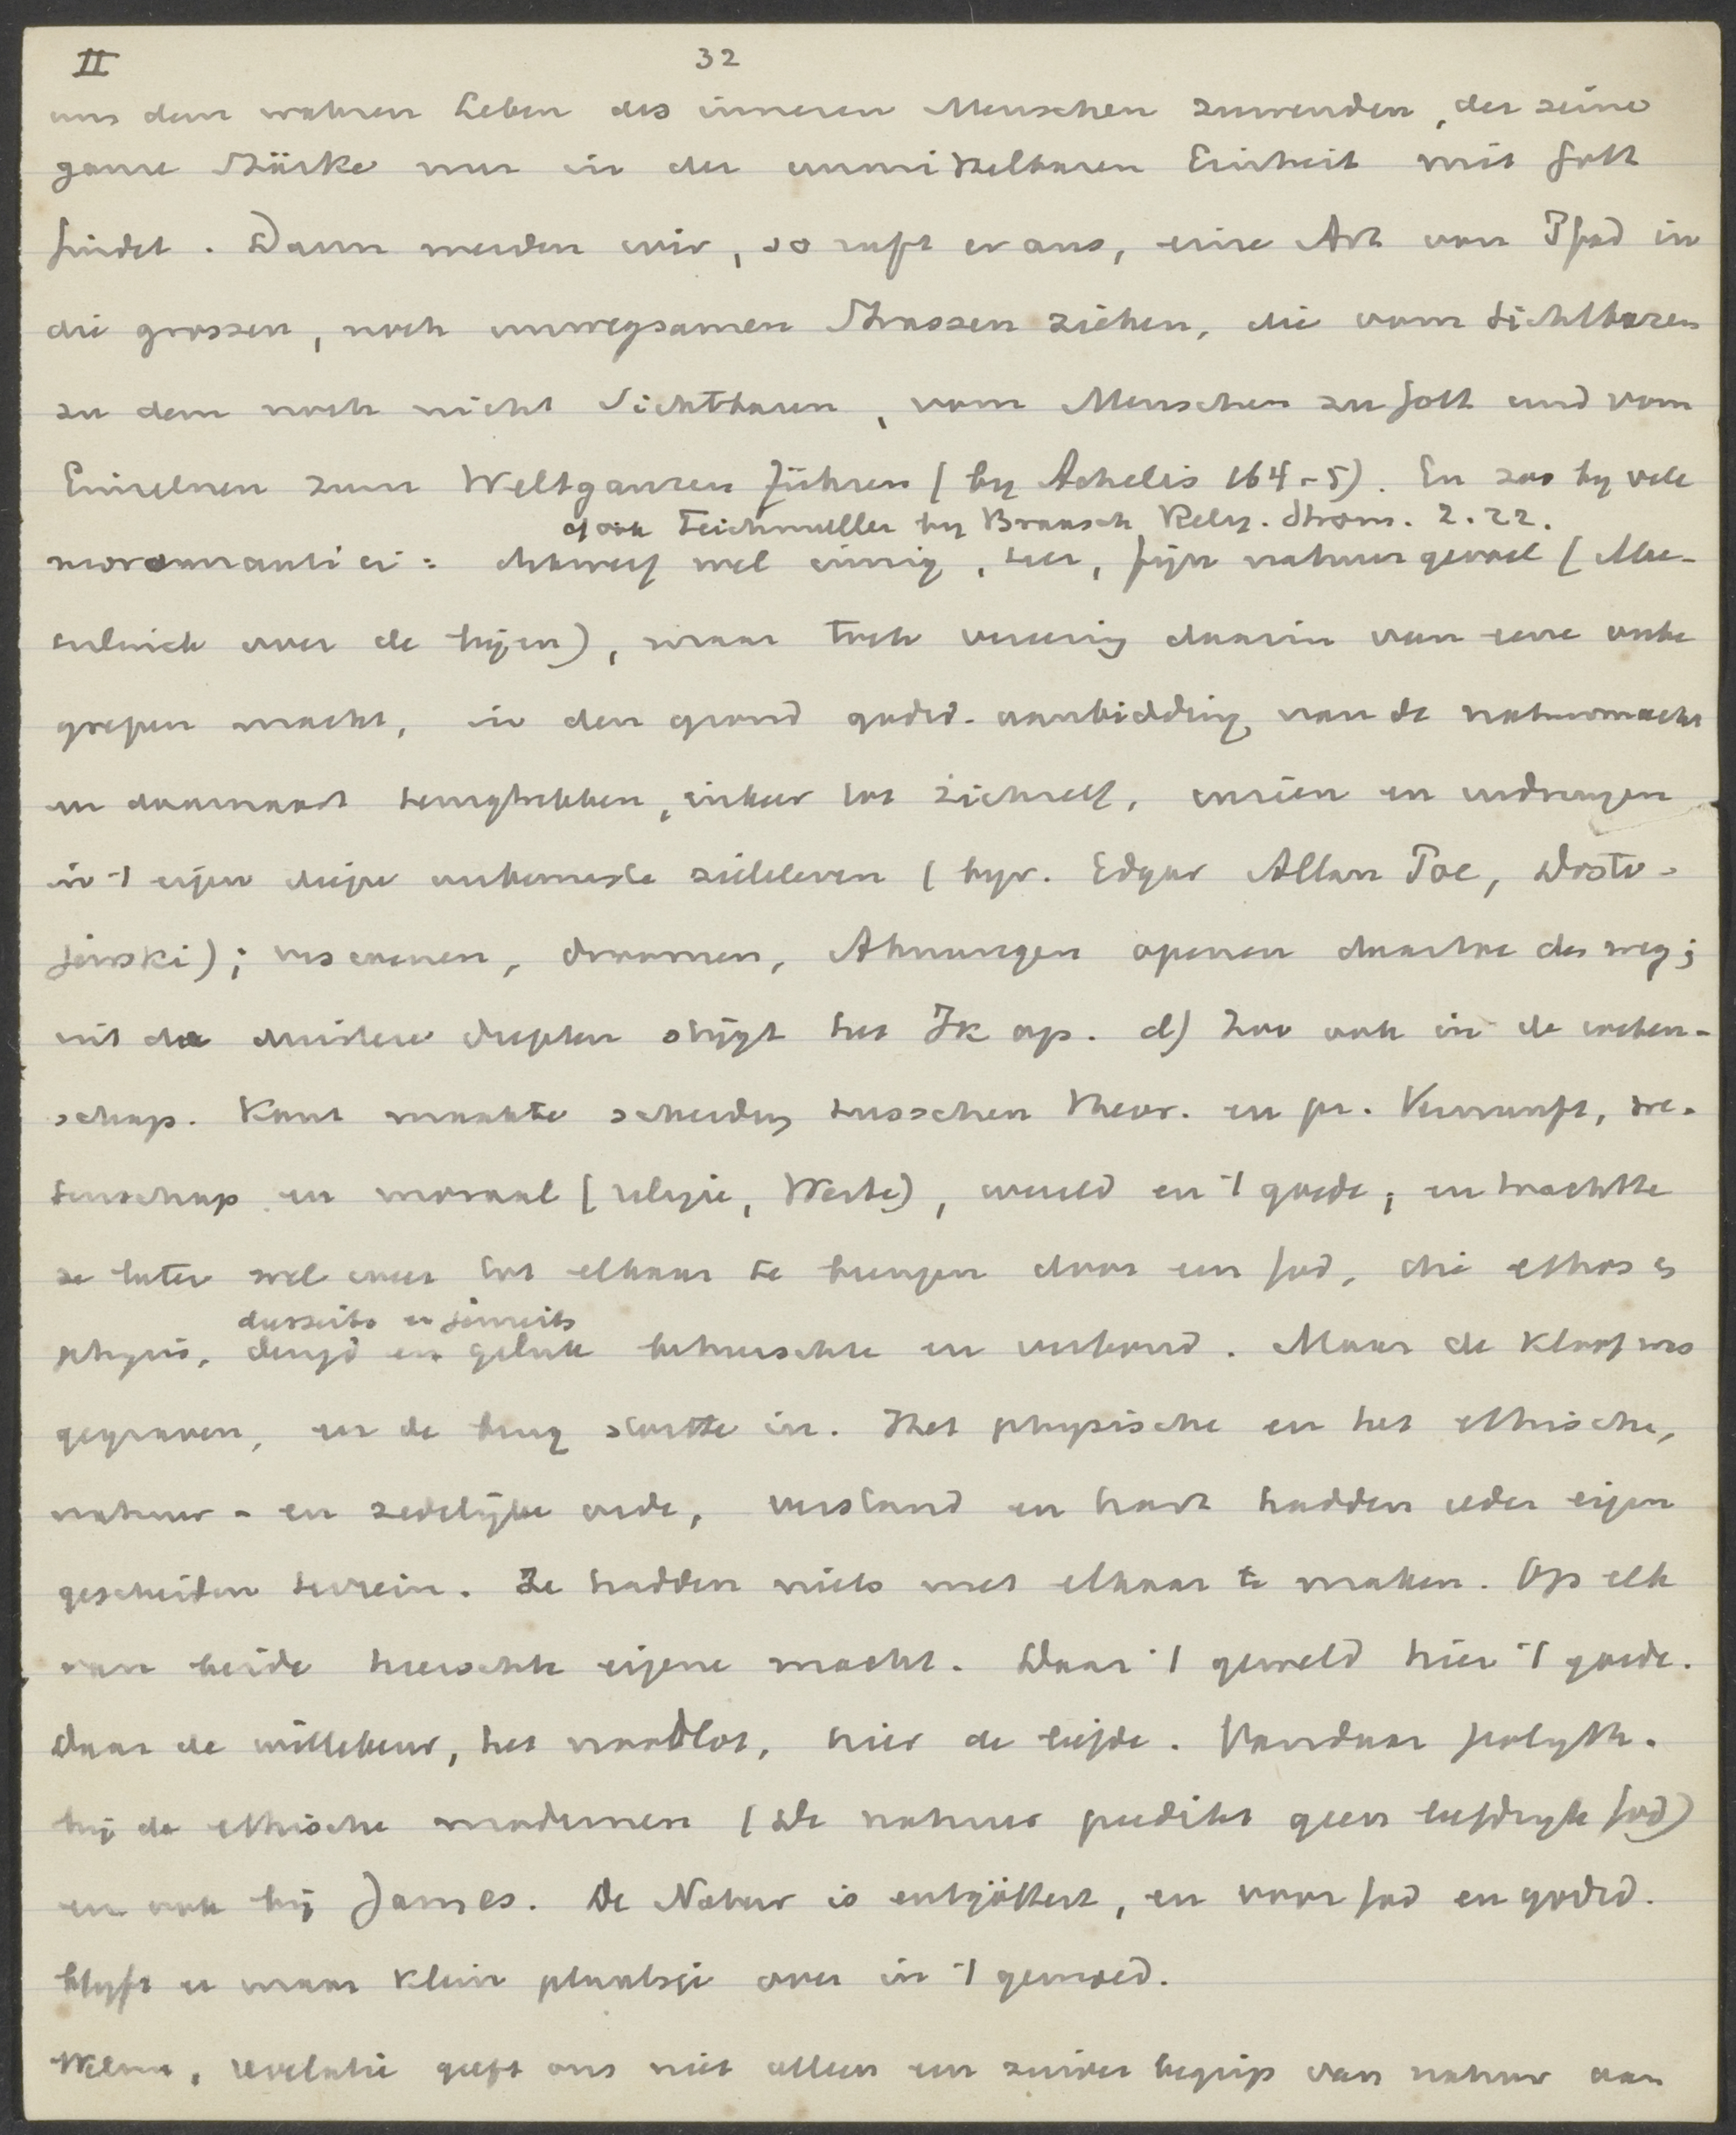 II 32
uns dem wahren Leben des inneren Menschen zuwenden, der seine
ganze Stärke nur in der unmittelbaren Einheit mit Gott
findet. Dann werden wir, so ruft er aus, eine Art von Pfad in
die grossen, noch unwegsamen Strassen ziehen, die vom Sichtbaren
zu dem noch nicht Sichtbaren, vom Menschen zu Gott und vom
Einzelnen zum Weltganzen führen (by Achelis 164-5). En zoo by vele
cf ook Teichmuller by Braasch Relig. Strom. 2.22.
neoromantici: eensdeels wel innig, teer, fijn natuurgevoel (Mae-
terlinck over de bijen), maar toch vereering daarin van eene onbe
grepen macht, in den grond godsd. aanbidding van de natuurmacht
en daarnaast terugtrekken, inkeer tot zichzelf, inzien en indringen
in 't eigen diepe onbewuste zieleleven (byv. Edgar Allan Poe, Dosto-
jewski); visioenen, droomen, Ahnungen openen daartoe den weg;
uit de duistere diepten stijgt het Ik op. d) Zoo ook in de weten-
schap. Kant maakte scheiding tusschen theor. en pr. Vernunft, we-
tenschap en moraal (religie, Werte), wereld en 't goede; en trachtte
ze later wel weer tot elkaar te brengen door een God, die ethos en
diesseits en jenseits
physis, deugd en geluk beheerschte en verbond. Maar de kloof was
gegraven, en de brug stortte in. Het physische en het ethische,
natuur- en zedelijke orde, verstand en hart hadden ieder eigen
gescheiden terrein. Ze hadden niets met elkaar te maken. Op elk
van beide heerschte eigene macht. Daar 't geweld hier 't goede.
Daar de willekeur, het noodlot, hier de liefde. Vandaar polyth.
bij de ethische modernen (De natuur predikt geen liefdryk God)
en ook bij James. De Natur is entgöttert, en voor God en godsd.
blyft er maar klein plaatsje over in 't gemoed.
Welnu, revelatie geeft ons niet alleen een zuiver begrip van natuur aan